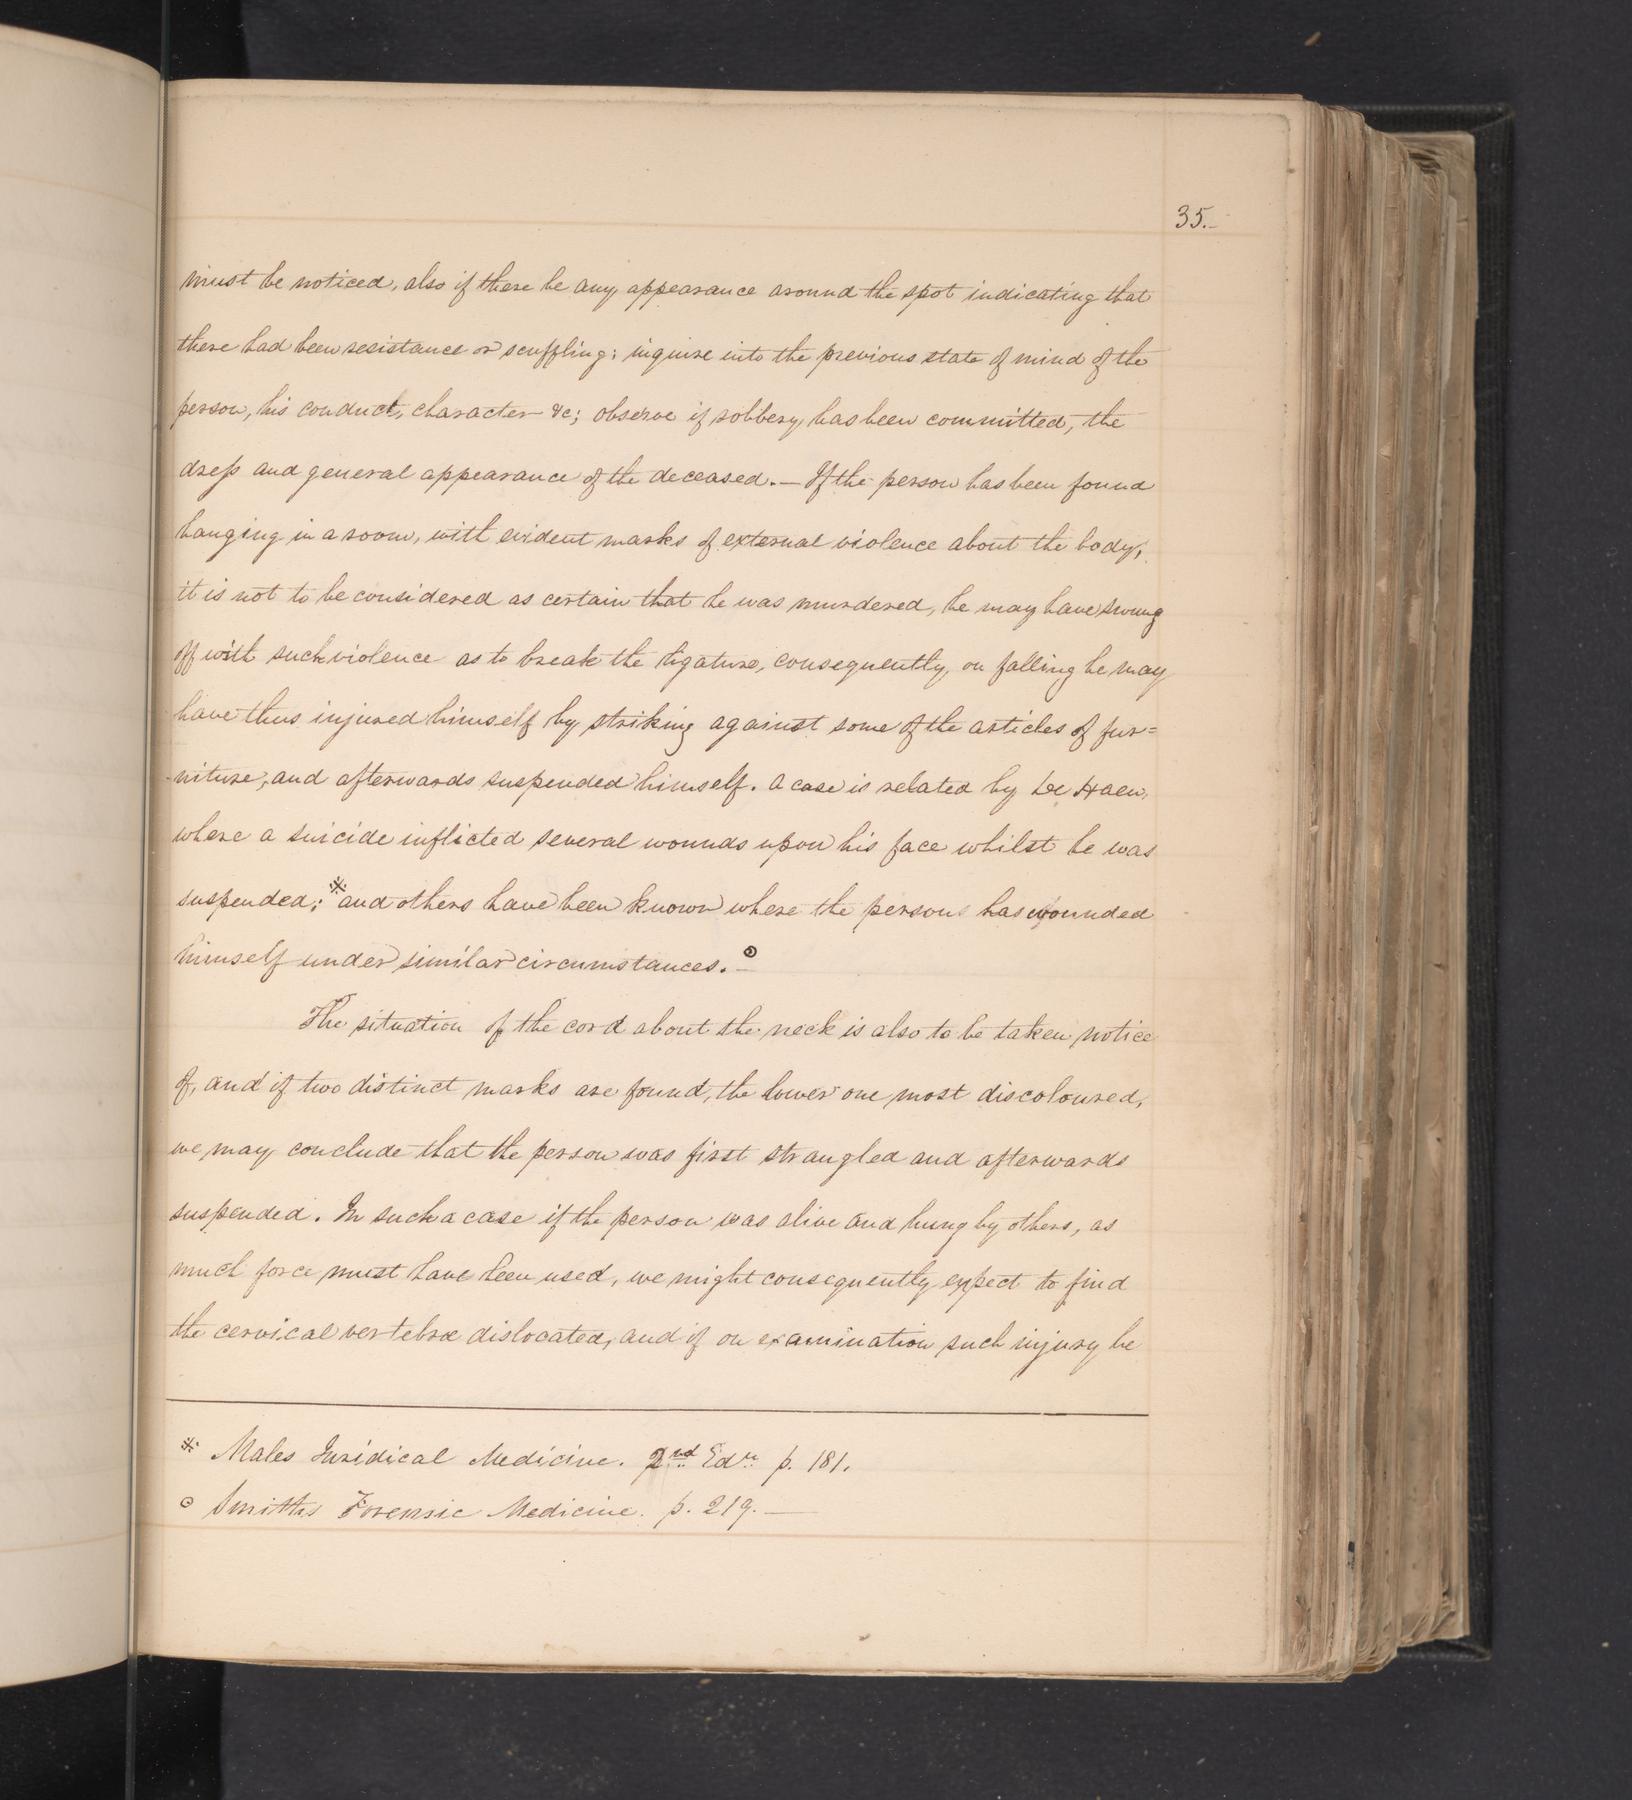 35.
must be noticed, also if there be any appearance around the spot indicating that
there had been resistance or scuffling; inquire into the previous state of mind of the
person, his conduct, character &c; observe if robbery has been committed, the
dress and general appearance of the deceased. — If the person has been found
hanging in a room, with evident marks of external violence about the body,
it is not to be considered as certain that he was murdered, he may have swung
off with such violence as to break the ligature, consequently, on falling he may
have thus injured himself by striking against some of the articles of fur=
niture, and afterwards suspended himself. A case is related by De Haen,
where a suicide inflicted several wounds upon his face whilst he was
suspended; ※ and others have been known where the persons has wounded
himself under similar circumstances. ⊙
The situation of the cord about the neck is also to be taken notice
of, and if two distinct marks are found, the lower one most discoloured,
we may conclude that the person was first strangled and afterwards
suspended. In such a case if the person was alive and hung by others, as
much force must have been used, we might consequently expect to find
the cervical vertebræ dislocated, and if on examination such injury be
※ Males Juridical Medicine. 2nd Edn p. 181.
⊙ Smith's Forensic Medicine. p. 219. —